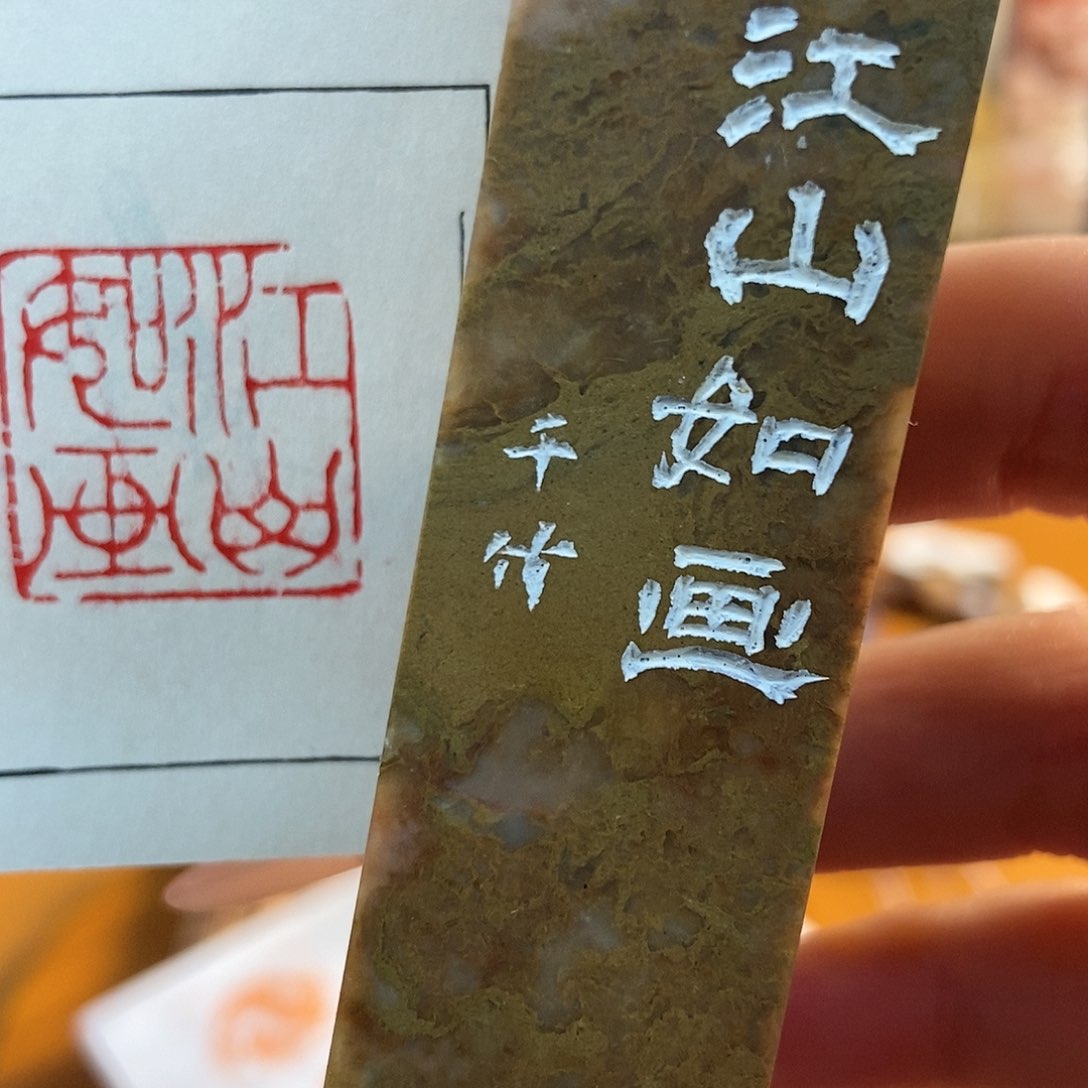 江山如画
千竹
江山
如画